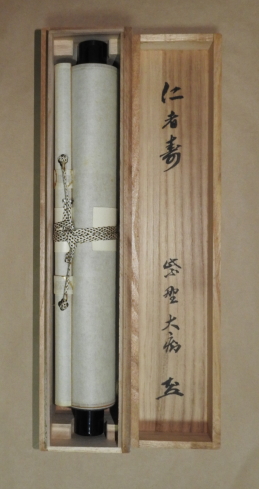 仁者寿
紫野大